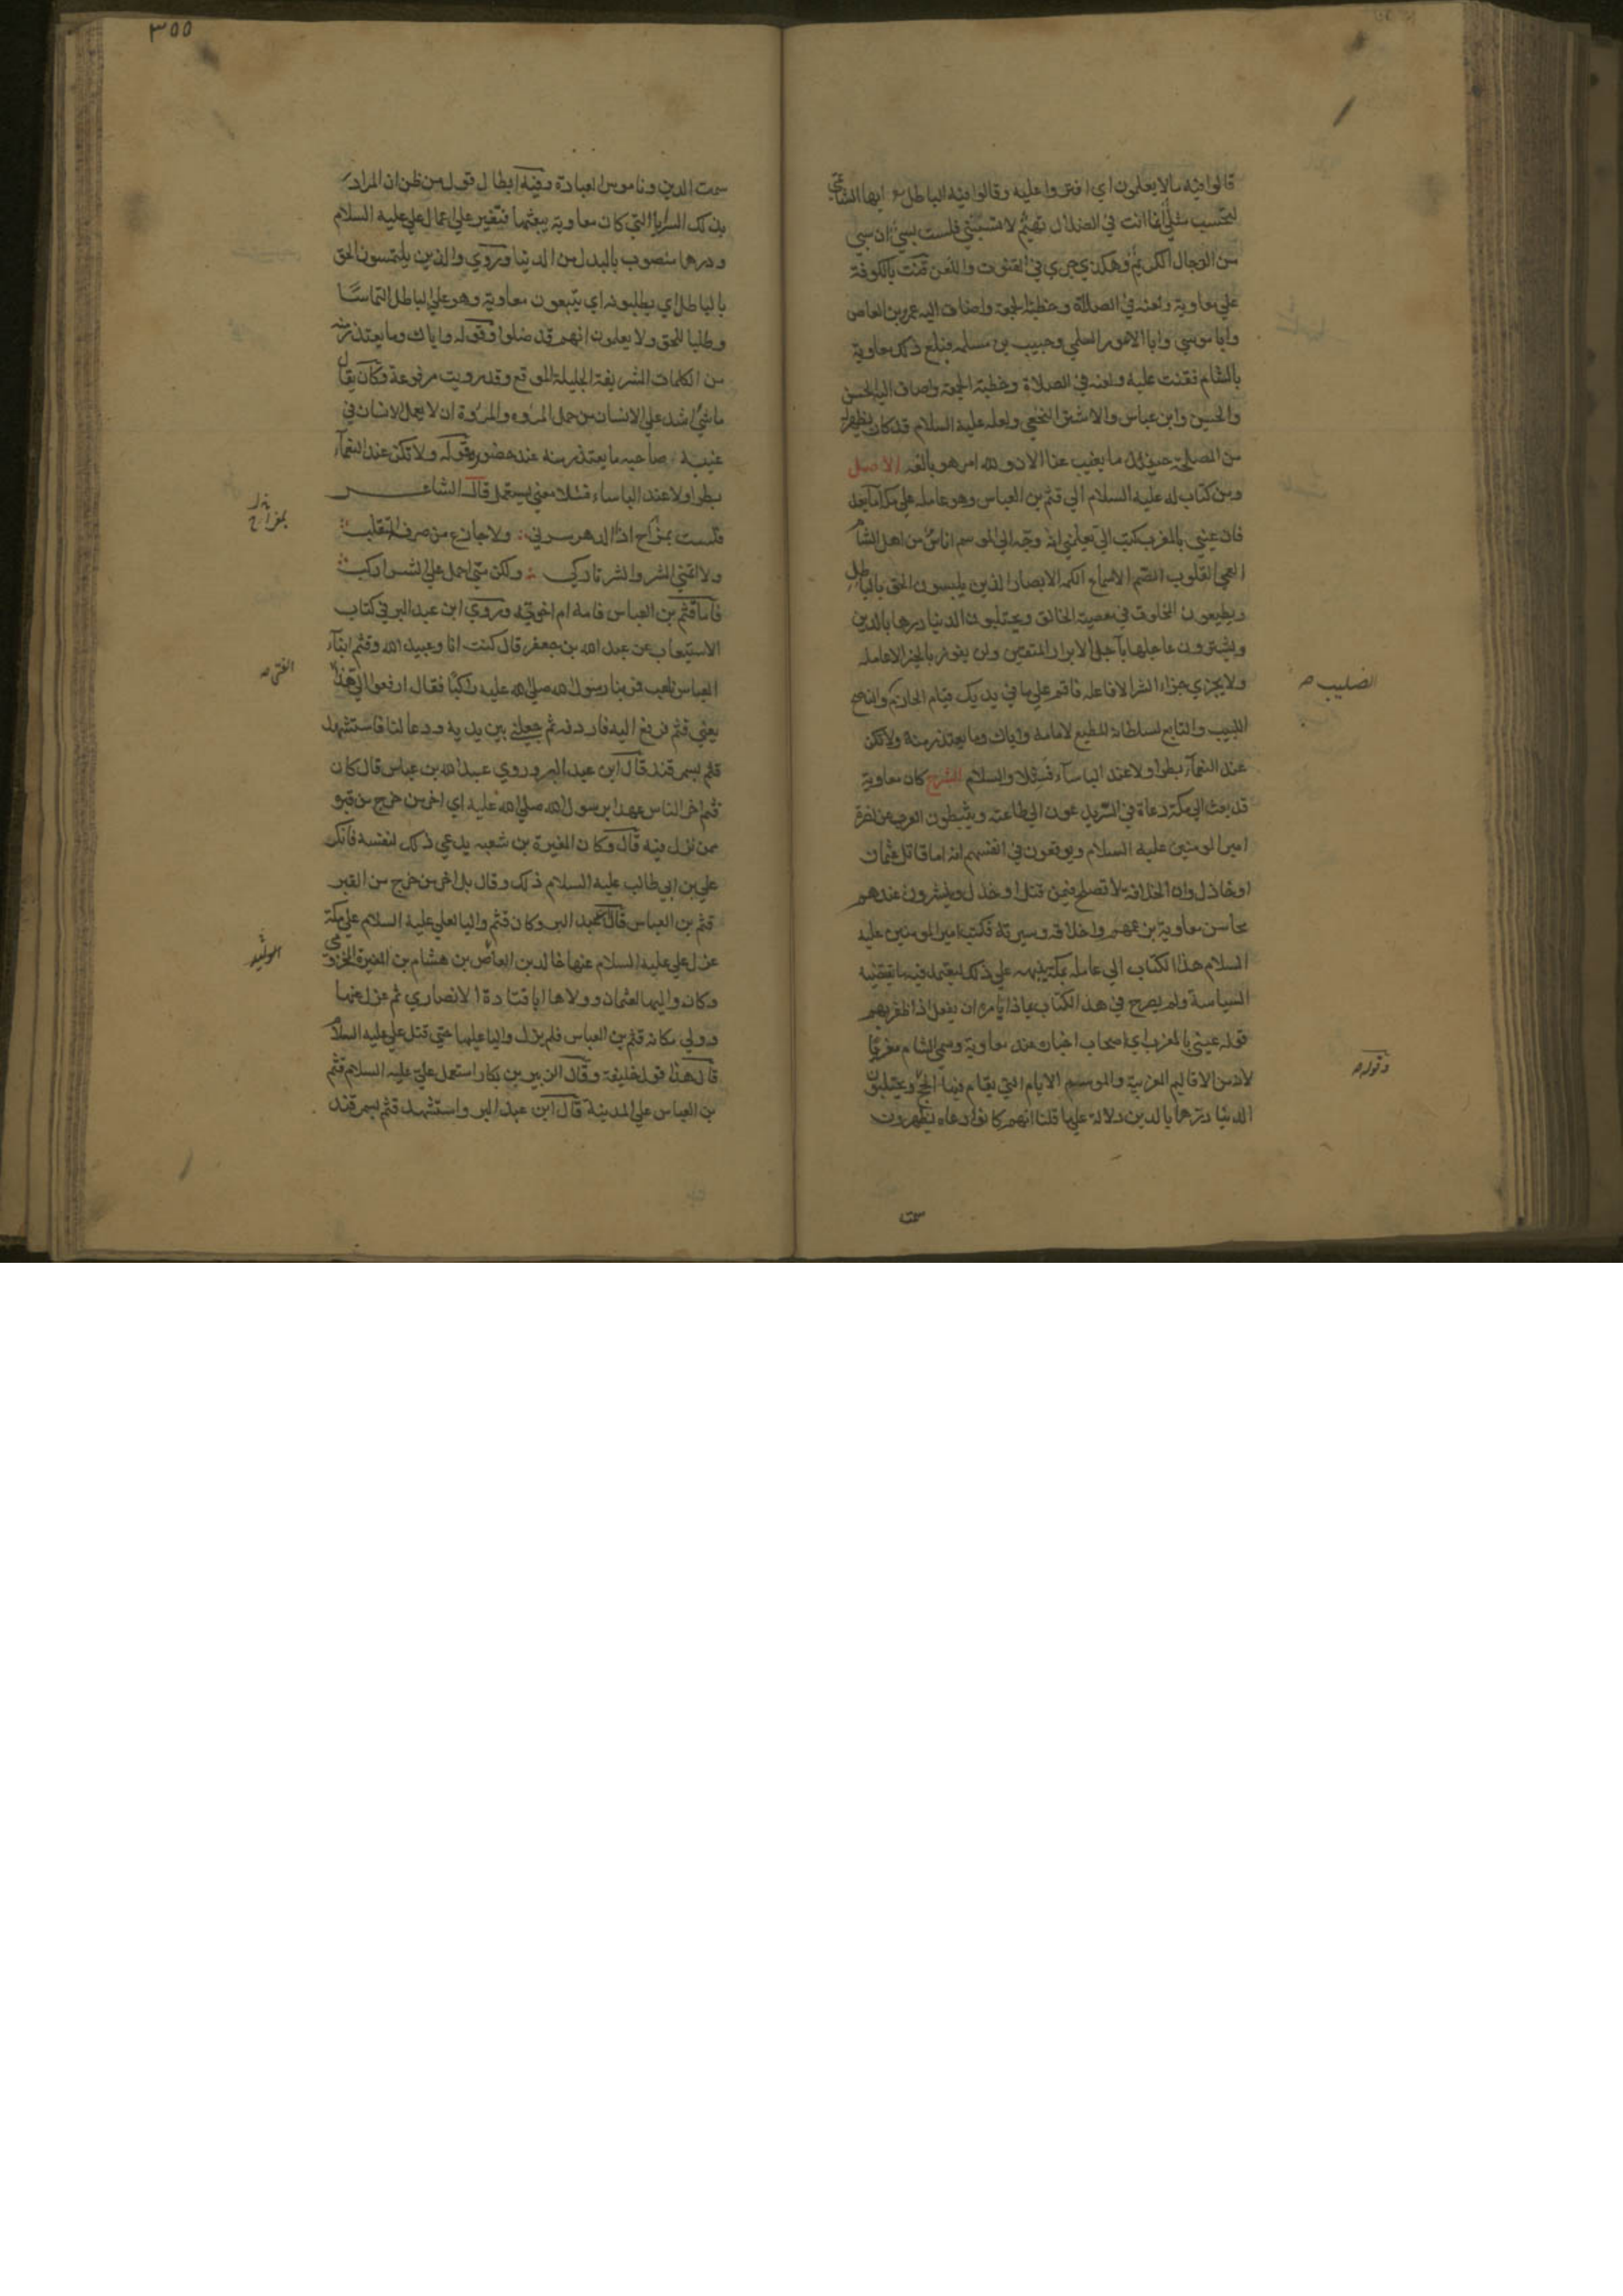 قالوا فيه مالا يعلمون اي افتروا عليه وقالوا فيه الباطل ايها الشاتمي
لتحسب مثلي انما انت في الضلال تهيم لا تسبنني فلست بسبي ان سبي
من الرجال الكريم وهكذي جري في القنوت واللعن قنت بالكوفة
علي معاوية ولعنه في الصلاة وخطبة الجمعة واضاف اليه عمرو بن العاص
وابا موسي وابا الاعور السلمي وحبيب بن مسلمه فبلغ ذلك معاوية
بالشام فقنت عليه ولعنه في الصلاة وخطبة الجمعة واضاف اليه الحسن
والحسين وابن عباس والاشتر النخعي ولعله عليه السلام قد كان يظهر له
من المصلحة حينئذ ما يغيب عنا الان ولله امر هو بالغه الاصل
ومن كتاب له عليه السلام الي قثم بن العباس وهو عامله علي مكة اما بعد
فان عيني بالمغرب كتب الي يعلمني انه وجه الي الموسم اناس من اهل الشام
العمي القلوب الصم الاسماع الكمه الابصار الذين يلبسون الحق بالباطل
ويطيعون المخلوق في معصية الخالق ويحتلبون الدنيا درها بالدين
ويشترون عاجلها بآجل الابرار المتقين ولن يفوز بالخير الا عامله
ولا يجزي جزاء الشر الا فاعله فاقم علي ما في يديك قيام الحازم
الصليب
والناصح
اللبيب والتابع لسلطانه المطيع لامامه واياك وما يعتذر منه ولا تكن
عند النعمآء بطرا ولا عند الباسآء فشلا والسلام الشرح كان معاوية
قد بعث الي مكة دعاة في السر يدعون الي طاعته ويثبطون العرب عن نصرة
امير المومنين عليه السلام ويوقعون في انفسهم انه اما قاتل عثمان
او خاذل وان الخلافة لا تصلح فيمن قتل او خذل وينشرون عندهم
محاسن معاوية بزعمهم واخلاقه وسيرته فكتب امير المومنين عليه
السلام هذا الكتاب الي عامله بمكة ينبهه علي ذلك ليعتمد فيه ما تقتضيه
السياسة ولم يصرح في هذا الكتاب بماذا يامره ان يفعل اذا ظفر بهم
قوله عيني بالمغرب اي اصحاب اخباره عند معاوية وسمي الشام مغربا
لانه من الاقاليم المغربية والموسم الايام التي يقام فيها الحج
وقوله
ويحتلبون
الدنيا درها بالدين دلالة علي ما قلنا انهم كانوا دعاه يظهرون
سمت
٣٥٥
سمت الدين وناموس العبادة وفيه ابطال قول من ظن ان المراد
بذلك السرايا التي كان معاوية يبعثها فتغير علي اعمال علي عليه السلام
ودرها منصوب بالبدل من الدنيا وروي والذين يلتمسون الحق
بالباطل اي يطلبونه اي يتبعون معاوية وهو علي الباطل التماسا
وطلبا للحق ولا يعلمون انهم قد ضلوا وقوله واياك وما يعتذر منه
من الكلمات الشريفة الجليلة الموقع وقد رويت مرفوعة وكان يقال
ما شئ اشد علي الانسان من حمل المروه والمروة ان لا يعمل الانسان في
غيبة صاحبه ما يعتذر منه عند حضوره وقوله ولا تكن عند النعمآء
بطرا ولا عند الباساء فشلا معني يستعمل قال الشاعر
فلست بمفراح اذا الدهر سرني ولا جازع من صرفه المتقلب
بمفراح
ولا اتمني الشر والشر تاركي ولكن متي احمل علي الشر اركب
فاما قثم بن العباس فامه ام اخوته وروي ابن عبد البر في كتاب
الاستيعاب عن عبد الله بن جعفر قال كنت انا وعبيد الله وقثم ابنآء
العباس نلعب فمر بنا رسول الله صلي الله عليه راكبا فقال ارفعوا الي هذا
الفتي
يعني قثم فرفع اليه فاردفه ثم جعلني بين يديه ودعا لنا فاستشهد
قثم بسمرقند قال ابن عبد البر وروي عبد الله بن عباس قال كان
قثم اخر الناس عهدا برسول الله صلي الله عليه اي اخر من خرج من قبره
ممن نزل فيه قال وكان المغيرة بن شعبه يدعي ذلك لنفسه فانكر
علي بن ابي طالب عليه السلام ذلك وقال بل اخر من خرج من القبر
قثم بن العباس قال عبد البر وكان قثم واليا لعلي عليه السلام علي مكة
عزل علي عليه السلام عنها خالد بن العاص بن هشام بن المغيرة المخزومي
وكان واليها لعثمان وولاها ابا قتادة الانصاري ثم عزله عنها
وولي مكانه قثم بن العباس فلم يزل واليا عليها حتي قتل علي عليه السلام
قال هذا قول خليفة وقال الزبير بن بكار استعمل علي عليه السلام قثم
بن العباس علي المدينة قال ابن عبد البر واستشهد قثم بسمرقند